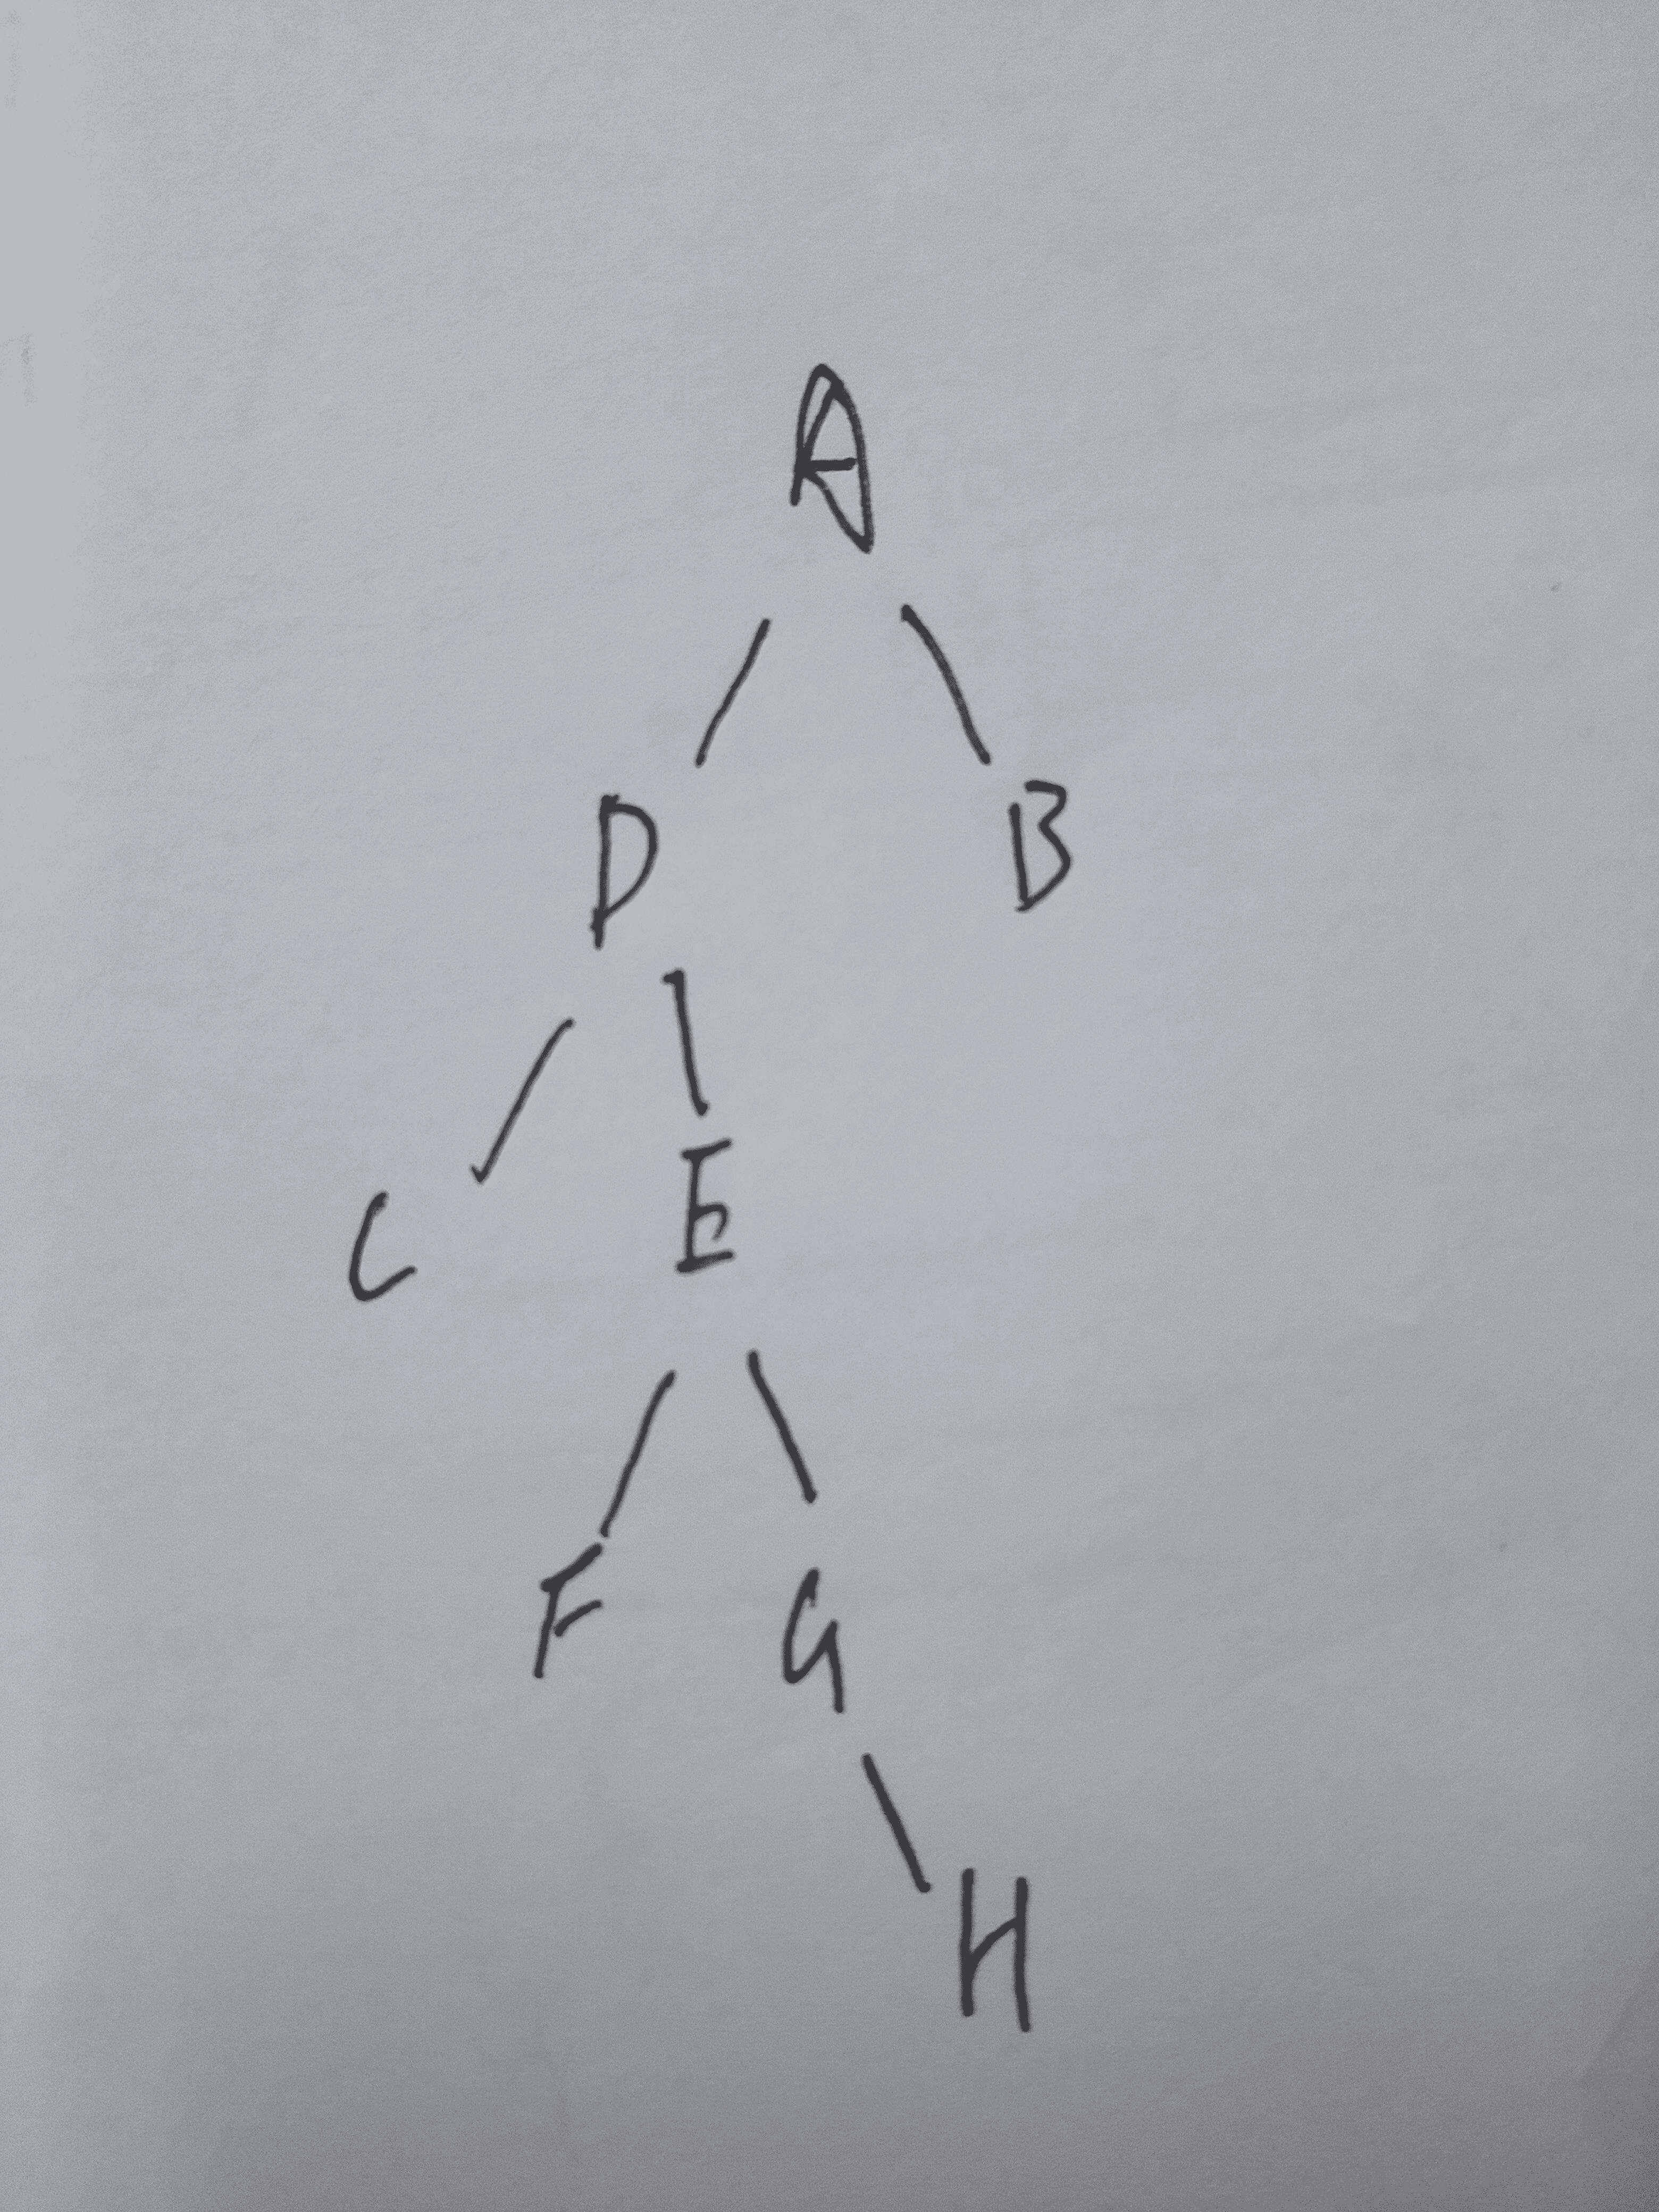 A
D B
C E
F G
H